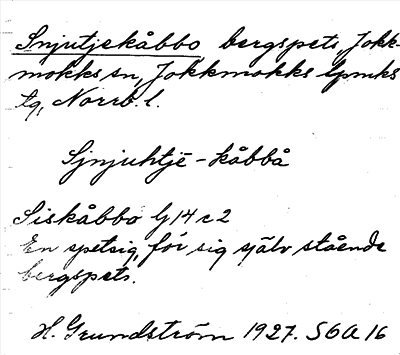 Snjutjekåbbo bergspets Jokk-
mokks sn, Jokkmokks lpmks
tg, Norrb. l.
Sjnjuhtjē-kåbbå
Siskåbbo G 14 c 2
En spetsig, för sig själv stående
bergspets.
H. Grundström 1927. SOA 16